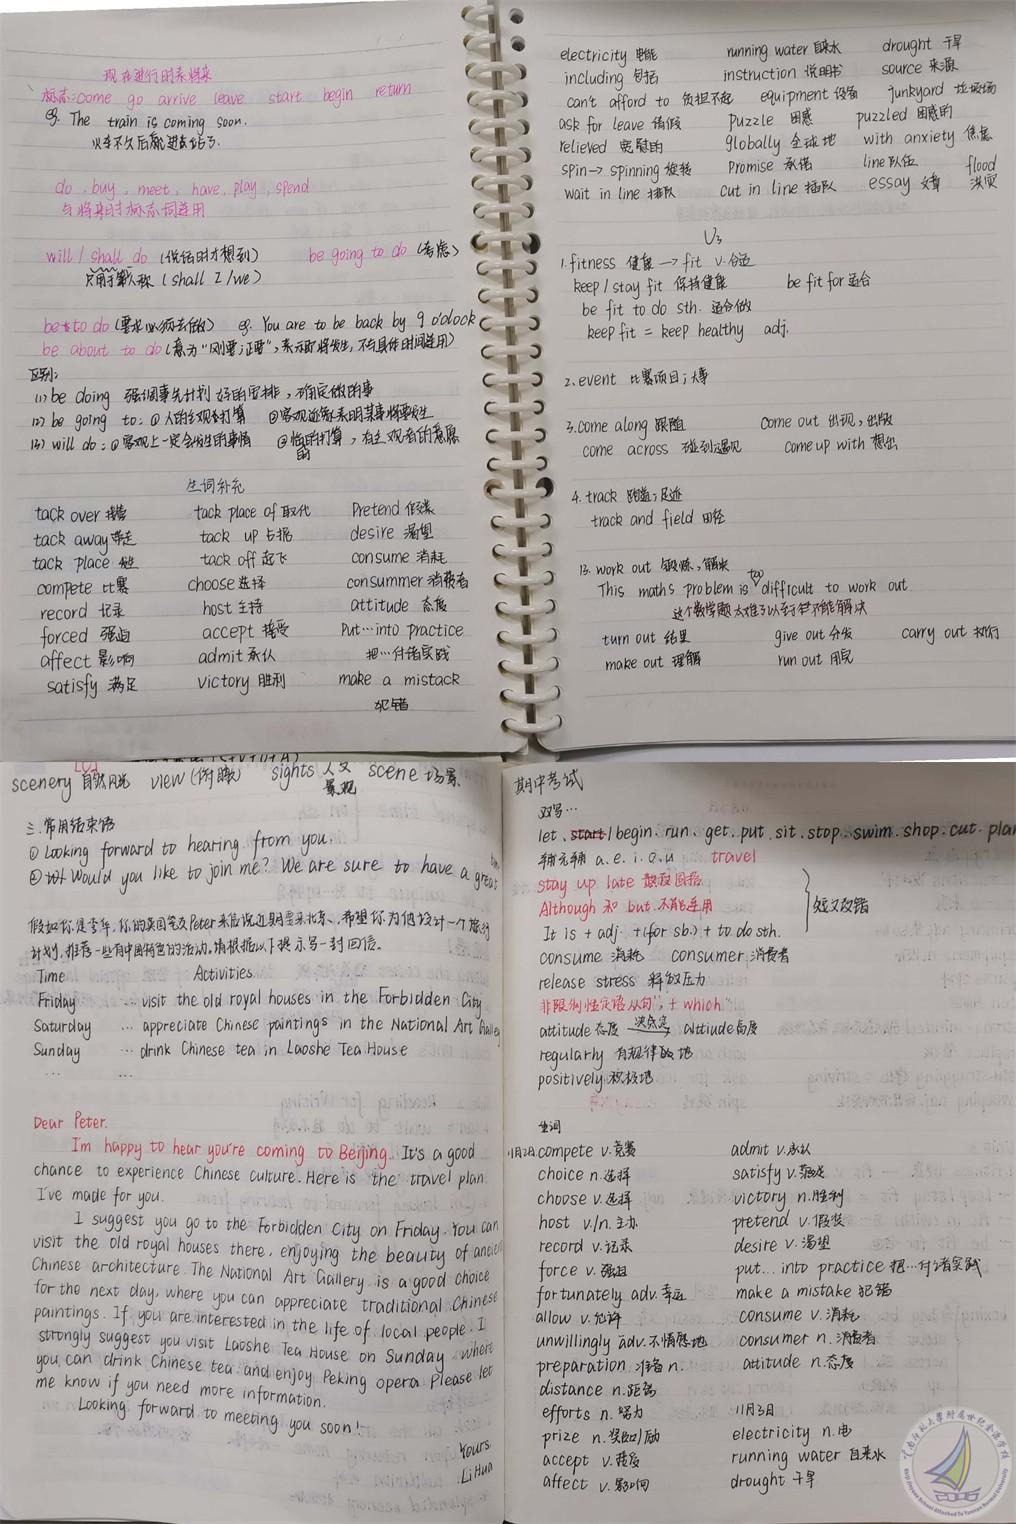 现在进行时表将来
标志:come go arrive leave start begin return
eg. The train is coming soon.
火车不久后就进去站了.
do , buy , meet , have , play , spend
与将来时标志词连用
will / shall do (说话时才想到) be going to do (考虑)
只用于第一人称 (shall I/we)
be to do (要求必须去做) eg. You are to be back by 9 o'clock
be about to do (意为“刚要;正要”,表示即将发生,不与具体时间连用)
区别:
(1) be doing 强调事先计划好的安排,确定做的事
(2) be going to: ①人的主观打算 ②客观迹象表明某事将要发生
(3) will do: ①客观上一定会发生的事情 ②临时的打算,有主观者的意愿
生词补充
tack over 接管 tack place of 取代 Pretend 假装
tack away 带走 tack up 占据 desire 渴望
tack place 发生 tack off 起飞 consume 消耗
compete 比赛 choose 选择 consummer 消费者
record 记录 host 主持 attitude 态度
forced 强迫 accept 接受 Put…into practice
affect 影响 admit 承认 把…付诸实践
satisfy 满足 victory 胜利 make a mistack
犯错
electricity 电能 running water 自来水 drought 干旱
including 包括 instruction 说明书 source 来源
can't afford to 负担不起 equipment 设备 junkyard 垃圾场
ask for leave 请假 puzzle 困惑 puzzled 困惑的
relieved 宽慰的 globally 全球地 with anxiety 焦虑
spin→spinning 旋转 promise 承诺 line 队伍 flood
wait in line 排队 cut in line 插队 essay 文章 洪灾
U3
1.fitness 健康 → fit v.合适
keep / stay fit 保持健康 be fit for 适合
be fit to do sth. 适合做
keep fit = keep healthy adj.
2.event 比赛项目;大事
3.come along 跟随 come out 出现,出版
come across 碰到遇见 come up with 想出
4.track 跑道;足迹
track and field 田径
13. work out 锻炼,解决
This maths problem is too difficult to work out.
这个数学题太难了以至于不能解决
turn out 结果 give out 分发 carry out 执行
make out 理解 run out 用完
scenery 自然风光 view (俯瞰) sights 人文景观 scene 场景
三.常用结束语
① Looking forward to hearing from you.
② Would you like to join me? We are sure to have a great time
假如你是李华,你的英国笔友Peter来信说近期要来北京,希望你为他设计一个旅行
计划,推荐一些有中国特色的活动,请根据以下提示写一封回信.
Time Activities
Friday … visit the old royal houses in the Forbidden City
Saturday … appreciate Chinese paintings in the National Art Gallery
Sunday … drink Chinese tea in Laoshe Tea House
… …
Dear Peter.
I'm happy to hear you're coming to Beijing. It's a good
chance to experience Chinese culture. Here is the travel plan
I've made for you.
I suggest you go to the Forbidden City on Friday. You can
visit the old royal houses there, enjoying the beauty of ancient
Chinese architecture. The National Art Gallery is a good choice
for the next day, where you can appreciate traditional Chinese
paintings. If you are interested in the life of local people. I
strongly suggest you visit Laoshe Tea House on Sunday. where
you can drink Chinese tea and enjoy Peking opera. Please let
me know if you need more information.
Looking forward to meeting you soon!
Yours
Li Hua
期中考试
双写…
let、start/begin、run、get、put、sit、stop、swim、shop、cut、plan
辅元辅 a.e.i.o.u travel
stay up late 熬夜
Although 和 but 不能连用
短文改错
It is + adj. + (for sb.) + to do sth.
consume 消耗 consumer 消费者
release stress 释放压力
非限制性定语从句“,+ which”
attitude 态度 → altiude 高度
regularly 有规律的地
positively 积极地
生词
11月2日 compete v.竞赛 admit v.承认
choice n.选择 satisfy v.
choose v.选择 victory n.胜利
host v./n.主办 pretend v.假装
record v.记录 desire v.渴望
force v.强迫 put…into practice 把…付诸实践
fortunately adv.幸运 make a mistake 犯错
allow v.允许 consume v.消耗
unwillingly adv.不情愿地 consumer n.消费者
preparation 准备 n. attitude n.态度
distance n.距离
efforts n.努力 11月3日
prize n.奖励 electricity n.电
accept v.接受 running water 自来水
affect v.影响 drought 干旱